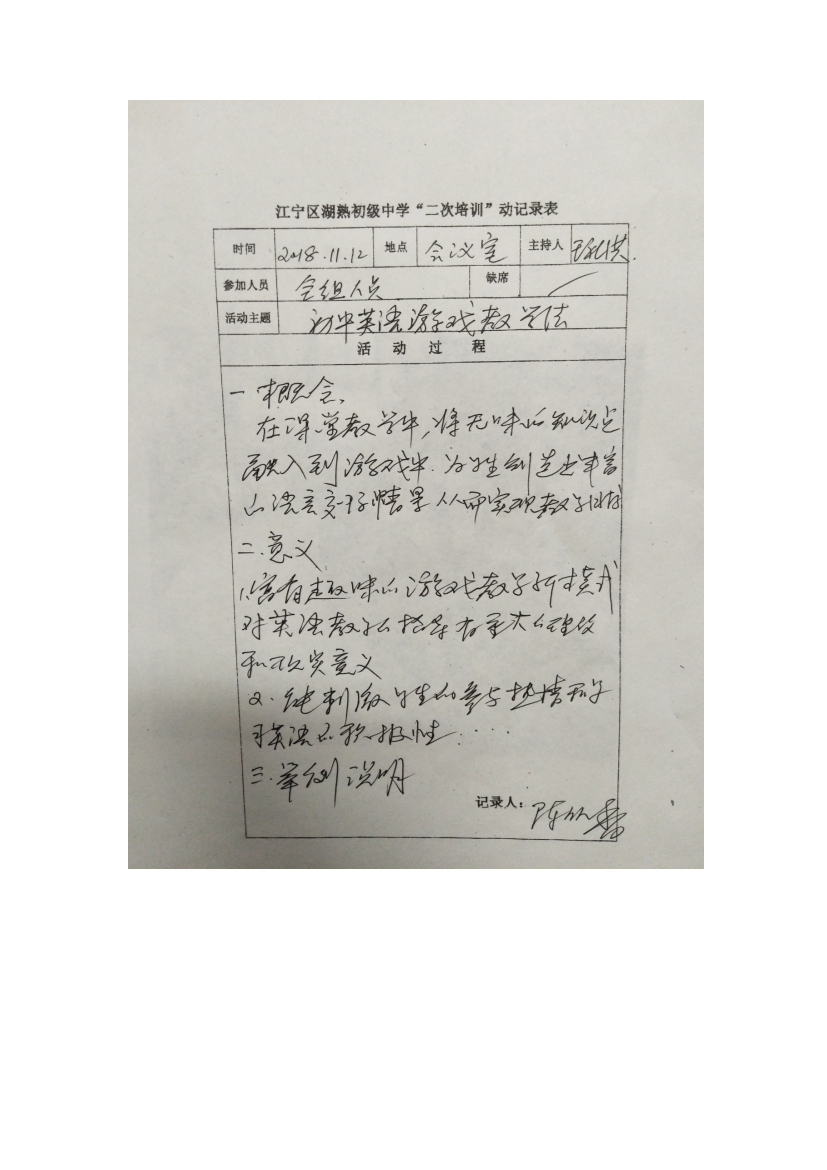 江宁区湖熟初级中学“二次培训”动记录表
时间 2018.11.12 地点 会议室 主持人
参加人员 全组人员 缺席
活动主题 初中英语游戏教学法
活动过程
一 概念、
在课堂教学中，将无味的知识点
融入到游戏中.为学生创造出丰富
的语言交际情景 从而实现教学目标
二.意义
1.富有趣味的游戏教学新模式
对英语教学的指导有重大的理论
和现实意义
2.能刺激学生的参与热情和学
习英语的积极性....
三.举例说明
记录人：陈